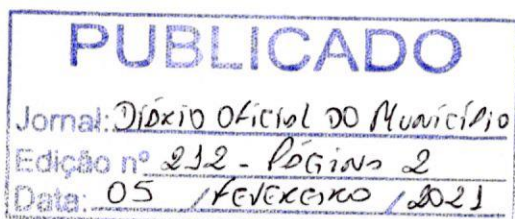 PUBLICADO
Jornal: Diário Oficial do Município
Edição nº 212 - Página 2
Data: 05 / Fevereiro / 2021